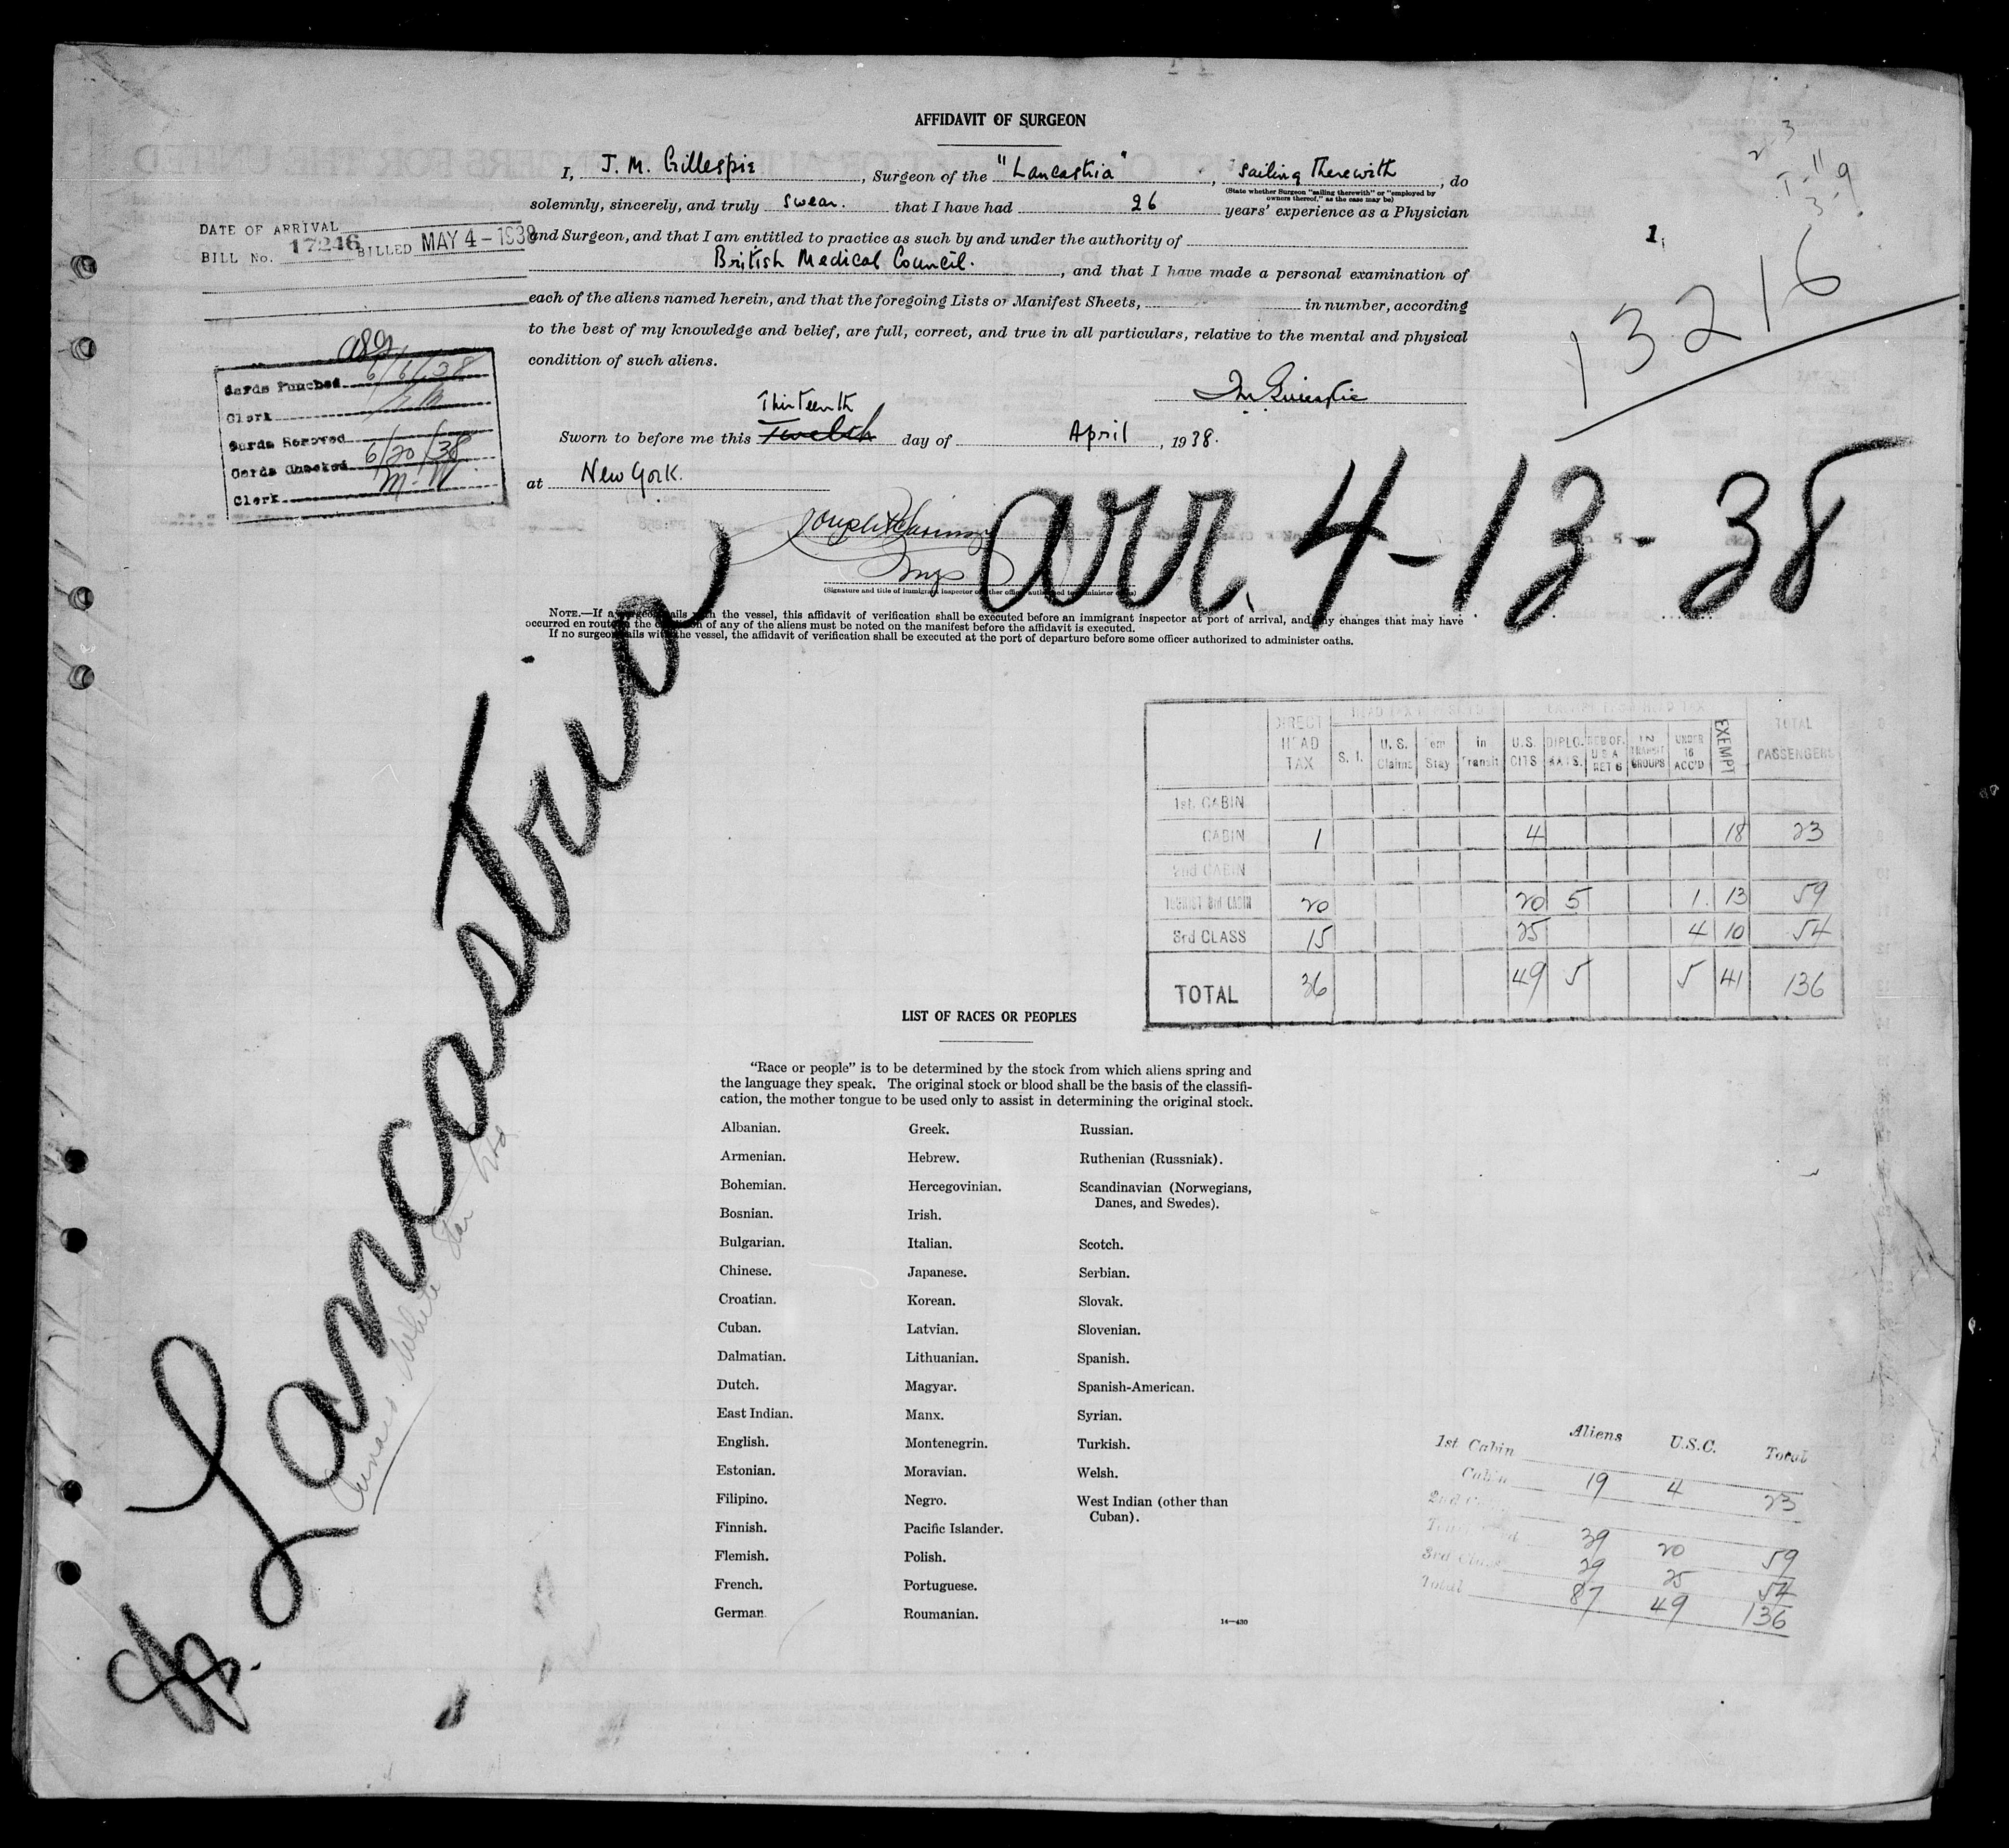 AFFIDAVIT OF SURGEON
I, J. M. Gillespie, Surgeon of the "Lancastria", sailing therewith, do
(State whether Surgeon "sailing therewith" or "employed by owners thereof," as the case may be)
solemnly, sincerely, and truly swear. that I have had 26 years' experience as a Physician
and Surgeon, and that I am entitled to practice as such by and under the authority of
British Medical Council., and that I have made a personal examination of
each of the aliens named herein, and that the foregoing Lists or Manifest Sheets, in number, according
to the best of my knowledge and belief, are full, correct, and true in all particulars, relative to the mental and physical
condition of such aliens.
JM Gillespie
Thirteenth
Sworn to before me this Twelth day of April, 1938.
at New York.
Insp
(Signature and title of immigrant inspector or other officer authorized to administer oaths)
NOTE.—If a surgeon sails with the vessel, this affidavit of verification shall be executed before an immigrant inspector at port of arrival, and any changes that may have
occurred en route in the condition of any of the aliens must be noted on the manifest before the affidavit is executed.
If no surgeon sails with the vessel, the affidavit of verification shall be executed at the port of departure before some officer authorized to administer oaths.
DATE OF ARRIVAL
BILL No. 17246 BILLED MAY 4 - 1938
Cards Punched 6/6/38
Clerk
Cards Removed
Cards Checked 6/20/38
Clerk M. W.
1
13216
arr. 4-13-38
Lancastria
Cunard White Star Ltd
DIRECT HEAD TAX
S. I.
U. S. Claims
Tem Stay
in Transit
U.S. CITS
DIPLO. MATS.
REB OF. U S A RET G
IN TRANSIT GROUPS
UNDER 16 ACC'D
EXEMPT
TOTAL PASSENGERS
1st. CABIN
CABIN 1 4 18 23
2nd CABIN
TOURIST 3rd CABIN 20 20 5 1 13 59
3rd CLASS 15 25 4 10 54
TOTAL 36 49 5 5 41 136
LIST OF RACES OR PEOPLES
"Race or people" is to be determined by the stock from which aliens spring and
the language they speak. The original stock or blood shall be the basis of the classifi-
cation, the mother tongue to be used only to assist in determining the original stock.
Albanian.
Armenian.
Bohemian.
Bosnian.
Bulgarian.
Chinese.
Croatian.
Cuban.
Dalmatian.
Dutch.
East Indian.
English.
Estonian.
Filipino.
Finnish.
Flemish.
French.
German.
Greek.
Hebrew.
Hercegovinian.
Irish.
Italian.
Japanese.
Korean.
Latvian.
Lithuanian.
Magyar.
Manx.
Montenegrin.
Moravian.
Negro.
Pacific Islander.
Polish.
Portuguese.
Roumanian.
Russian.
Ruthenian (Russniak).
Scandinavian (Norwegians,
Danes, and Swedes).
Scotch.
Serbian.
Slovak.
Slovenian.
Spanish.
Spanish-American.
Syrian.
Turkish.
Welsh.
West Indian (other than
Cuban).
14—430
Aliens U.S.C. Total
1st Cabin
Cabin 19 4 23
2nd Cabin
39 20 59
3rd Class 29 25 54
Total 87 49 136